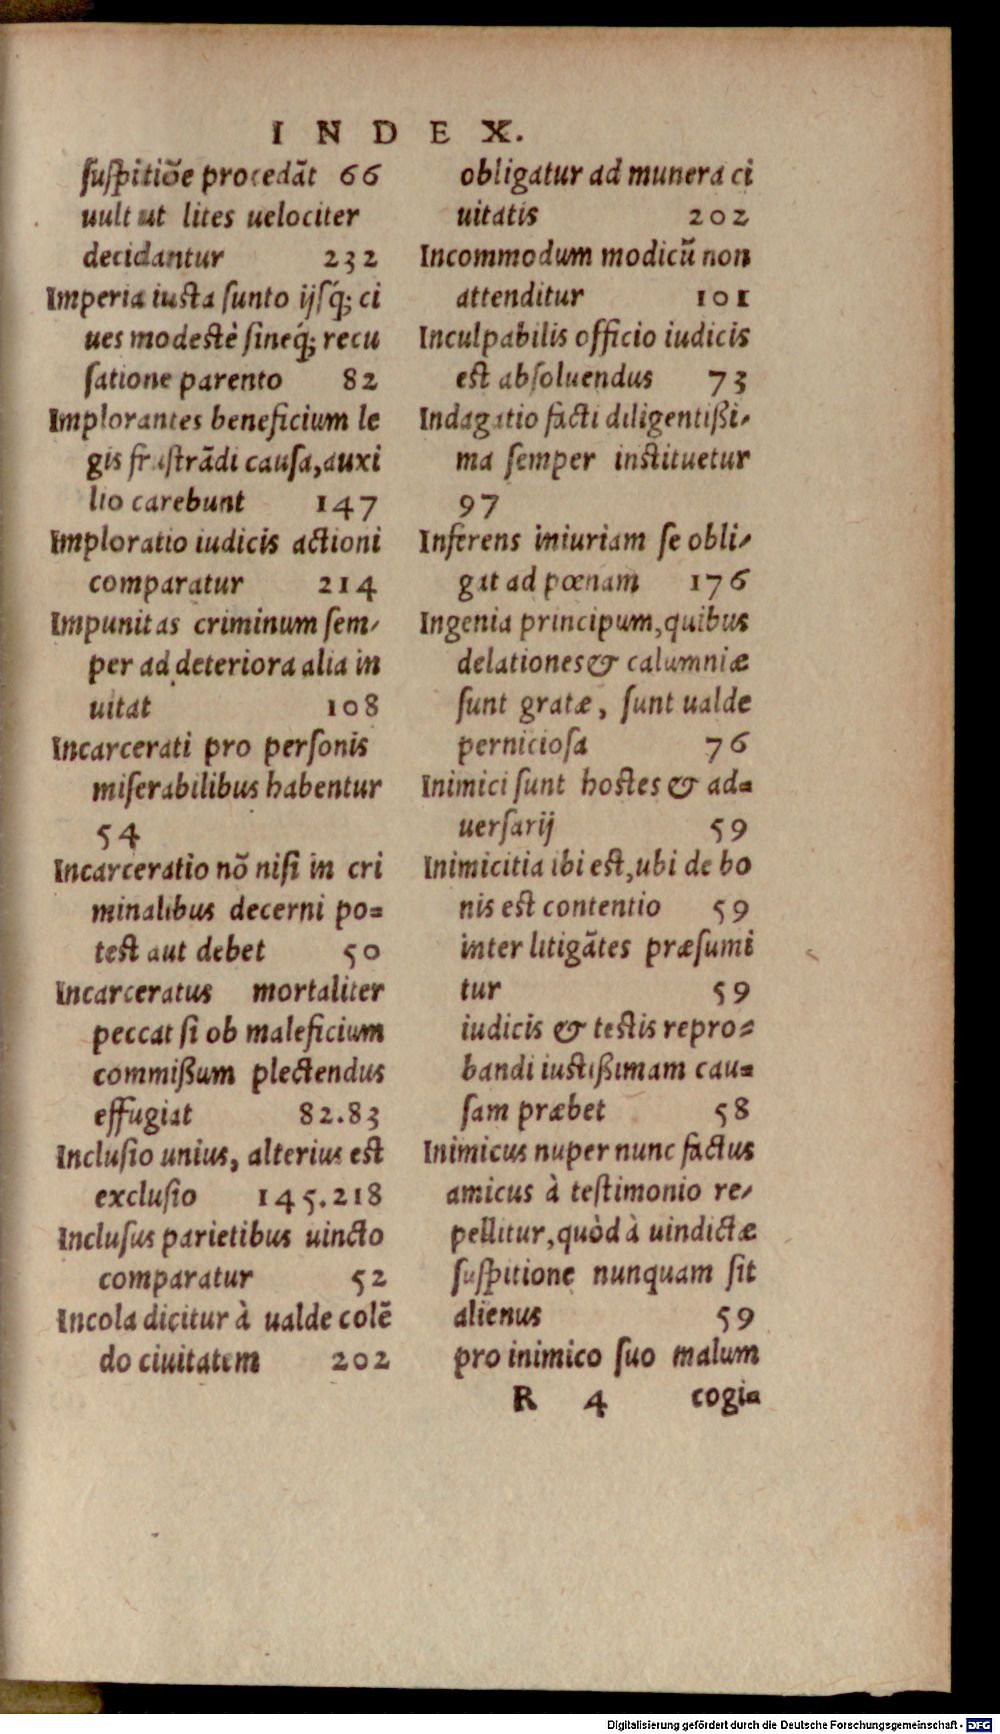 INDEX.
ſuſpitiõe procedãt 66
uult ut lites uelociter
decidantur 232
Imperia iusta ſunto ijſq́; ci
ues modestè ſineq́; recu
ſatione parento 82
Implorantes beneficium le
gis frustrãdi cauſa, auxi
lio carebunt 147
Imploratio iudicis actioni
comparatur 214
Impunitas criminum ſem⸗
per ad deteriora alia in
uitat 108
Incarcerati pro perſonis
miſerabilibus habentur
54
Incarceratio nõ niſi in cri
minalibus decerni po⸗
test aut debet 50
Incarceratus mortaliter
peccat ſi ob maleficium
commißum plectendus
effugiat 82.83
Incluſio unius, alterius est
excluſio 145.218
Incluſus parietibus uincto
comparatur 52
Incola dicitur à ualde colẽ
do ciuitatem 202
obligatur ad munera ci
uitatis 202
Incommodum modicũ non
attenditur 101
Inculpabilis officio iudicis
est abſoluendus 73
Indagatio facti diligentißi⸗
ma ſemper instituetur
97
Inferens iniuriam ſe obli⸗
gat ad pœnam 176
Ingenia principum, quibus
delationes & calumniæ
ſunt gratæ, ſunt ualde
pernicioſa 76
Inimici ſunt hostes & ad⸗
uerſarij 59
Inimicitia ibi est, ubi de bo
nis est contentio 59
inter litigãtes præſumi
tur 59
iudicis & testis repro⸗
bandi iustißimam cau⸗
ſam præbet 58
Inimicus nuper nunc factus
amicus à testimonio re⸗
pellitur, quòd à uindictæ
ſuſpitione nunquam ſit
alienus 59
pro inimico ſuo malum
R 4 cogi⸗
Digitalisierung gefördert durch die Deutsche Forschungsgemeinschaft - DFG